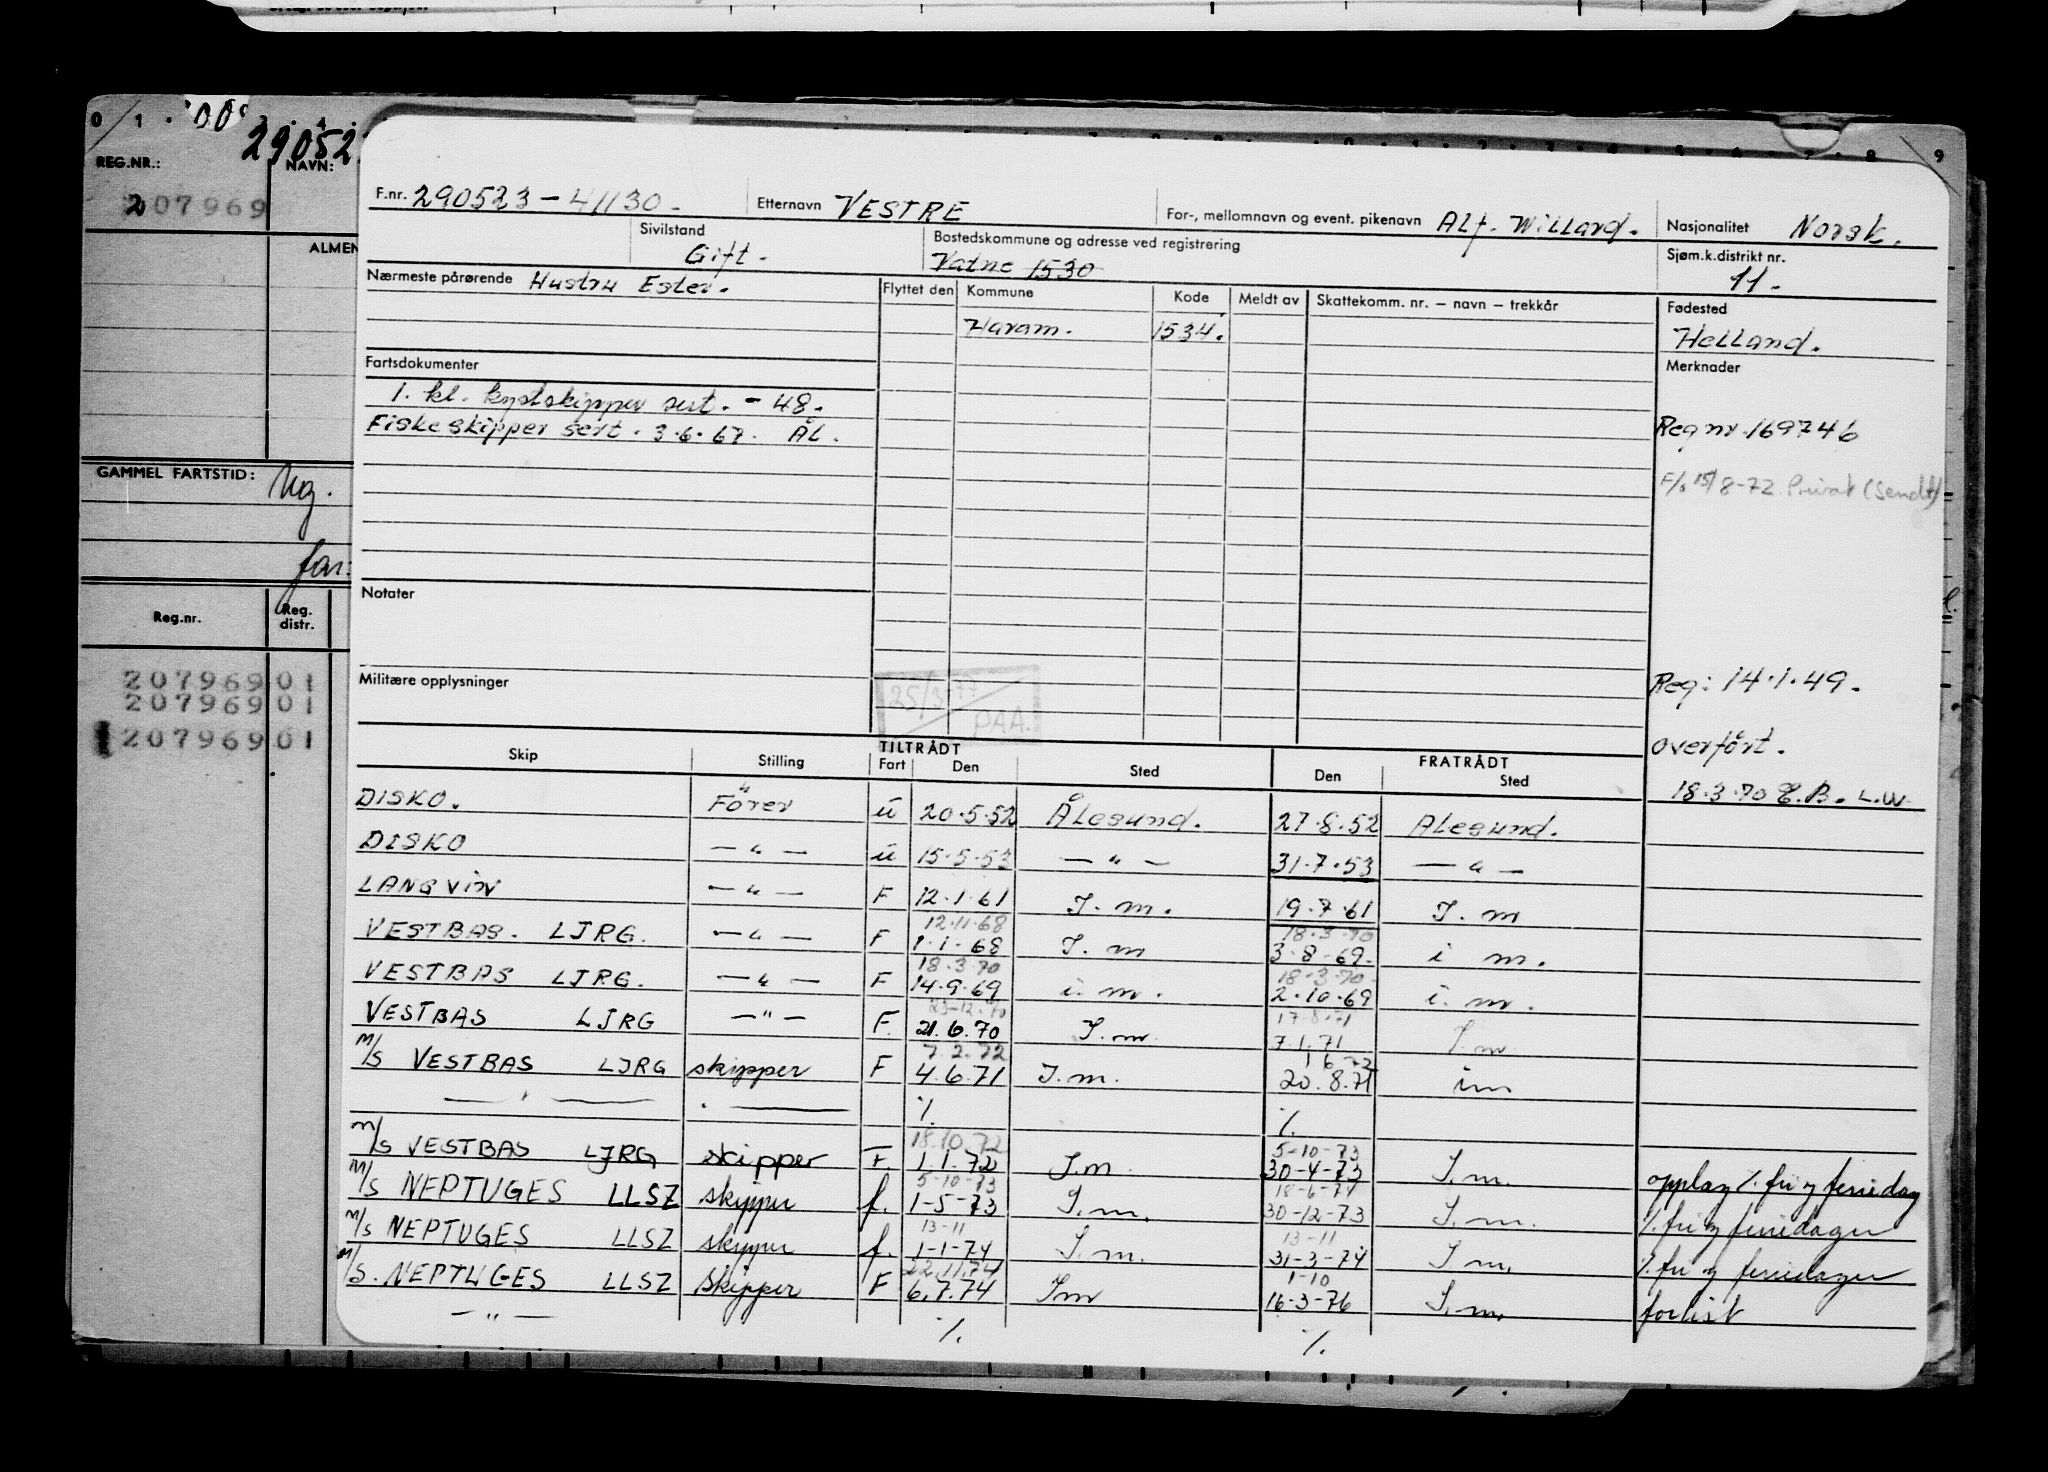 29052
REG.NR.:
NAVN:
207969
ALMEN
GAMMEL FARTSTID:
Reg.nr.
Reg. distr.
207969 01
207969 01
207969 01
F.nr. 290523-41130. Etternavn VESTRE For-, mellomnavn og event. pikenavn Alf. Willard. Nasjonalitet Norsk.
Sivilstand Gift. Bostedskommune og adresse ved registrering Vatne 1530 Sjøm.k.distrikt nr. 11.
Nærmeste pårørende Hustru Ester. Flyttet den Kommune Kode Meldt av Skattekomm. nr. – navn – trekkår Fødested
Haram. 1534. Helland.
Fartsdokumenter Merknader
1. kl. kystskipper sert. - 48.
Fiskeskipper sert. 3.6.67. ÅL.
Regnr. 169746
F/s 15/8-72 Privat (Sendt)
Notater
Militære opplysninger
25/3-77
PAA.
Reg: 14.1.49.
overført.
18.3.70 E.B. L.W.
Skip Stilling TILTRÅDT Fart Den Sted FRATRÅDT Den Sted
DISKO. Förer u 20.5.52 Ålesund. 27.8.52 Ålesund.
DISKO — " — u 15.5.53 — " — 31.7.53 — " —
LANGVIN — " — F 12.1.61 I.m. 19.7.61 I.m
12.11.68 18.3.70
VESTBAS. LJRG. — " — F 1.1.68 I.m 3.8.69. i m.
18.3.70 18.3.70
VESTBAS LJRG. — " — F 14.9.69 i.m. 2.10.69 i.m.
23-12.70 17.8.71
VESTBAS LJRG — " — F. 21.6.70 I.m 7.1.71 I.m
7.2.72 1 6 72
M/S VESTBAS LJRG skipper F 4.6.71 I.m. 20.8.71 im
— " — — %. %.
18.10.72 5-10-73
M/S VESTBAS LJRG skipper F. 1.1.72 I.m 30-4-73 I.m. opplag %. fri og feriedag
5-10-73 18-6-74
M/S NEPTUGES LLSZ skipper f. 1-5-73 I.m. 30-12-73 I.m. %. fri og feriedager
13-11 13-11
M/S NEPTUGES LLSZ skipper f. 1-1-74 I.m. 31-3-74 I.m. %. fri og feriedager
22.11.74 1-10
M/S. NEPTUGES LLSZ skipper F 6.7.74 Im 16-3-76 I.m. forlist
— " — %. %.